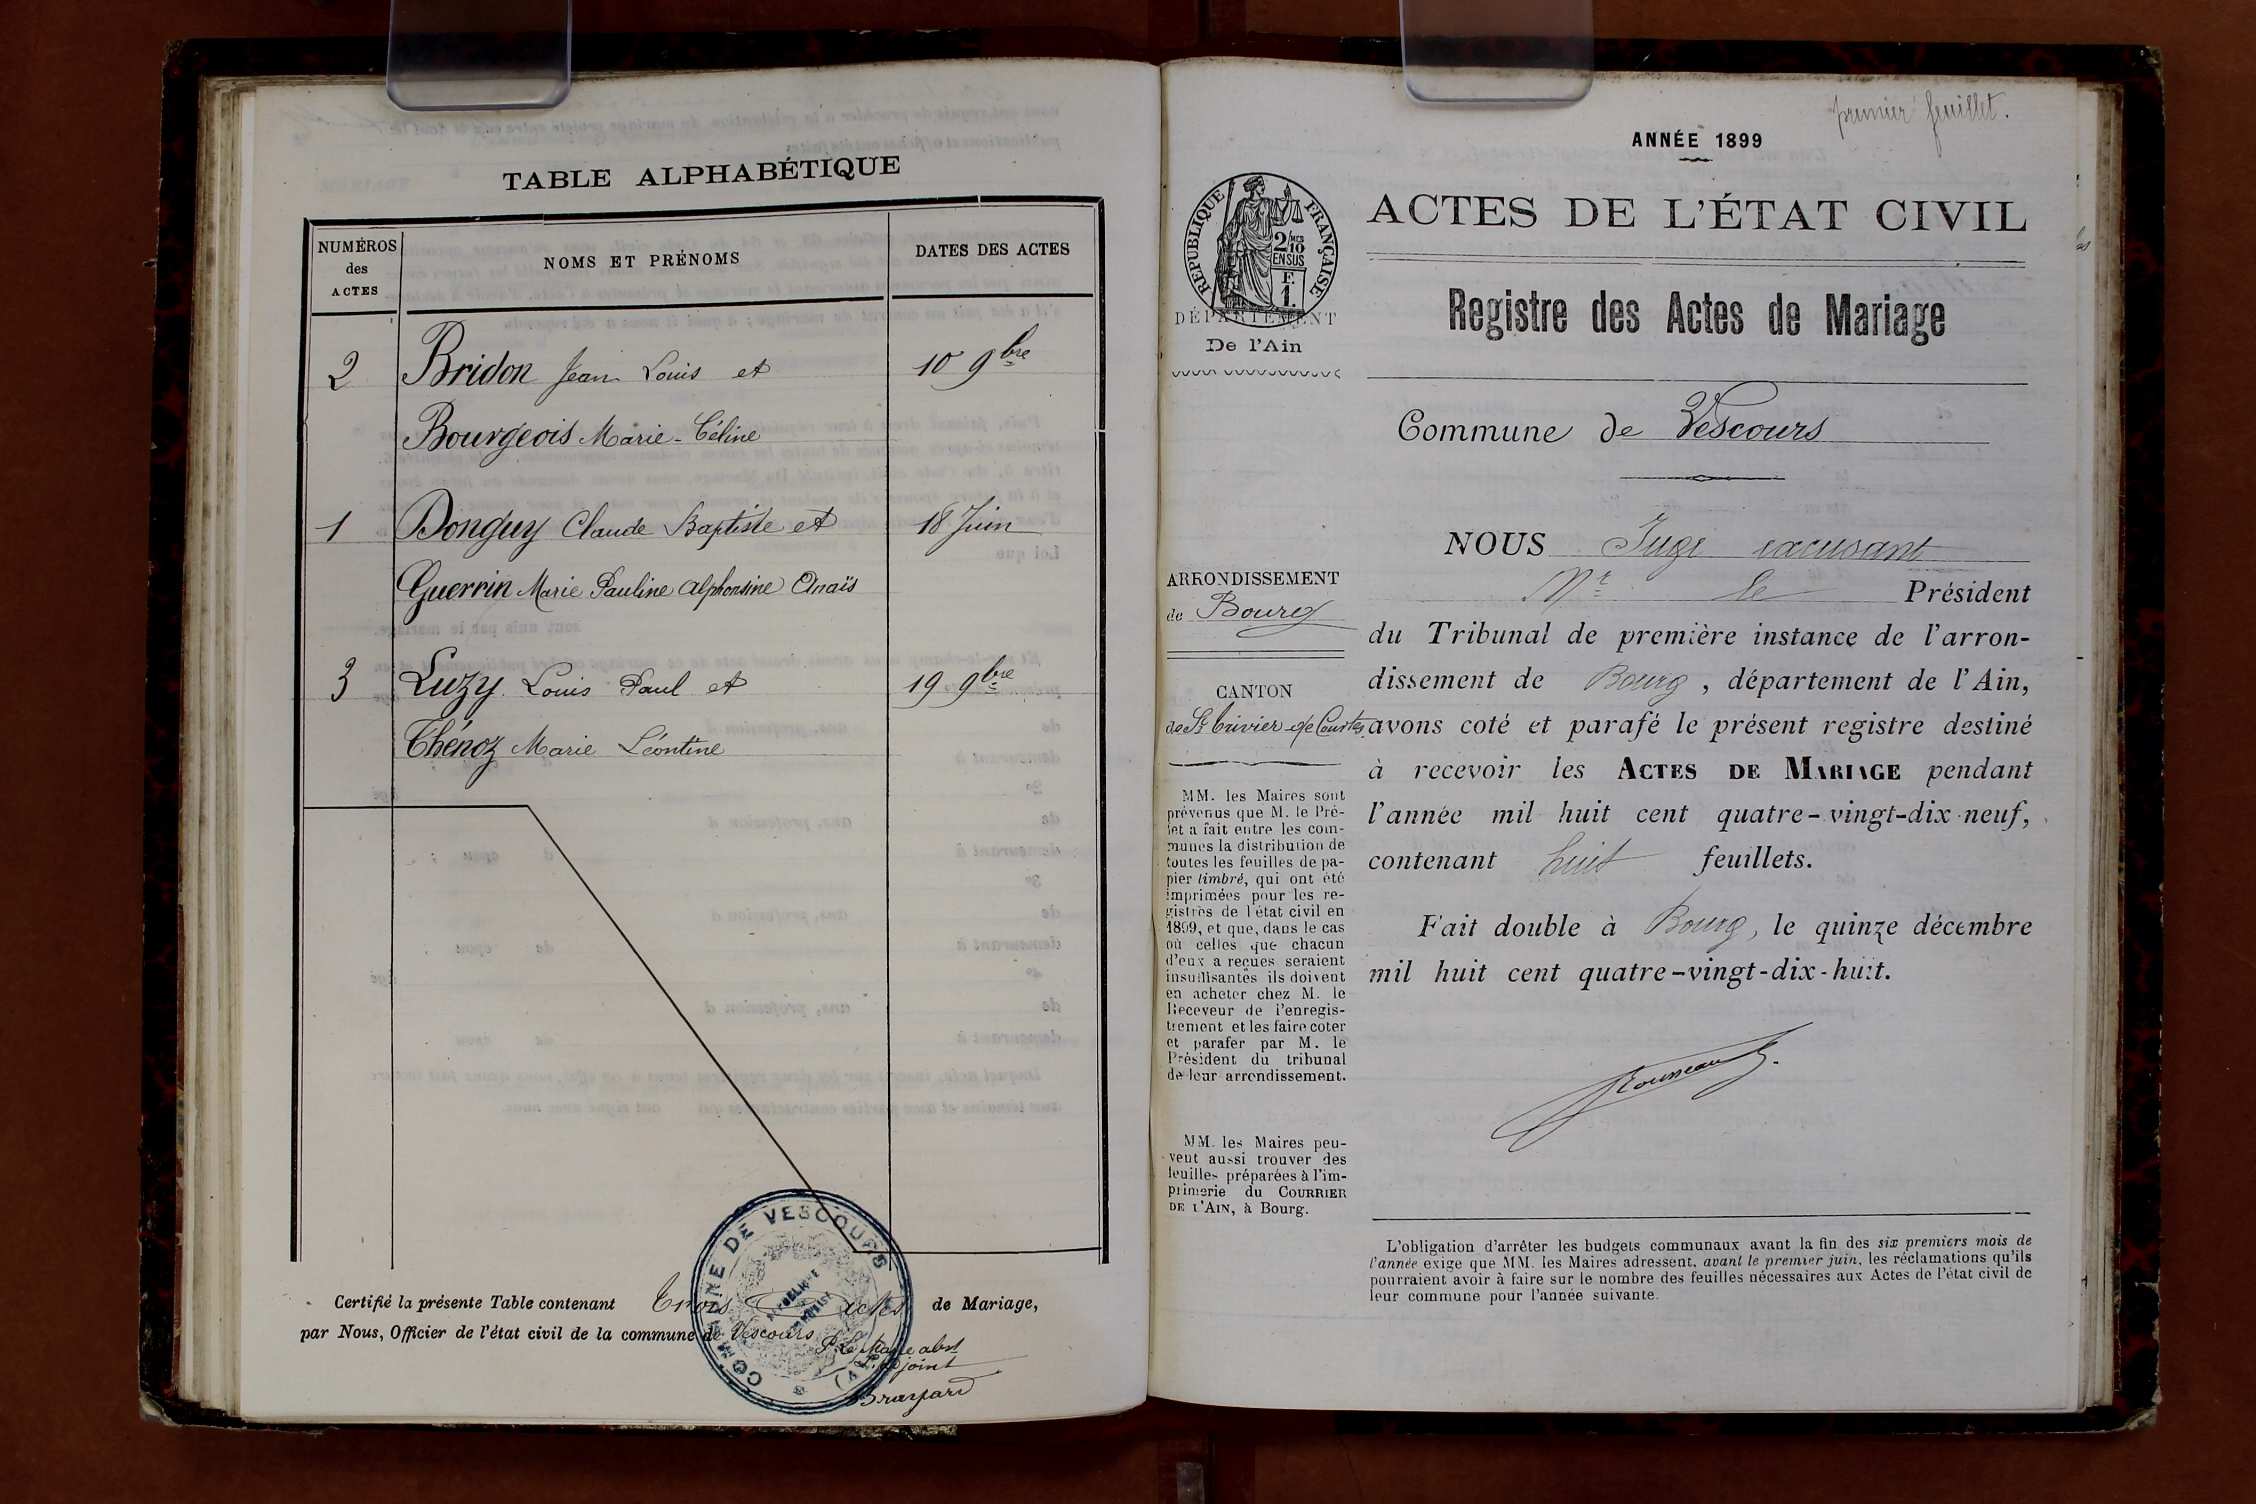 TABLE ALPHABÉTIQUE
NUMÉROS
des
ACTES
NOMS ET PRÉNOMS
DATES DES ACTES
2 Bridon Jean Louis et 10 9bre
Bourgeois Marie-Céline
1 Donguy Claude Baptiste et 18 Juin
Guerrin Marie Pauline Alphonsine Anaïs
3 Luzy Louis Paul et 19 9bre
Thénoz Marie Léontine
Certifié la présente Table contenant trois actes de Mariage,
par Nous, Officier de l'état civil de la commune de Vescours
P. Le Maire abst
L'adjoint
COMMUNE DE VESCOURS
(AIN)
premier feuillet.
ANNÉE 1899
RÉPUBLIQUE FRANÇAISE
2/10 MES
EN SUS
F.
1.
DÉPARTEMENT
De l'Ain
ACTES DE L'ÉTAT CIVIL
Registre des Actes de Mariage
Commune de Vescours
ARRONDISSEMENT
de Bourg
CANTON
de St Trivier de Courtes
MM. les Maires sont
prévenus que M. le Pré-
fet a fait entre les com-
munes la distribution de
toutes les feuilles de pa-
pier timbré, qui ont été
imprimées pour les re-
gistres de l'état civil en
1899, et que, dans le cas
où celles que chacun
d'eux a reçues seraient
insuffisantes ils doivent
en acheter chez M. le
Receveur de l'enregis-
trement et les faire coter
et parafer par M. le
Président du tribunal
de leur arrondissement.
MM. les Maires peu-
vent aussi trouver des
feuilles préparées à l'im-
primerie du COURRIER
DE L'AIN, à Bourg.
NOUS Juge excusant
Mr le Président
du Tribunal de première instance de l'arron-
dissement de Bourg, département de l'Ain,
avons coté et parafé le présent registre destiné
à recevoir les ACTES DE MARIAGE pendant
l'année mil huit cent quatre-vingt-dix-neuf,
contenant huit feuillets.
Fait double à Bourg, le quinze décembre
mil huit cent quatre-vingt-dix-huit.
L'obligation d'arrêter les budgets communaux avant la fin des six premiers mois de
l'année exige que MM. les Maires adressent, avant le premier juin, les réclamations qu'ils
pourraient avoir à faire sur le nombre des feuilles nécessaires aux Actes de l'état civil de
leur commune pour l'année suivante.